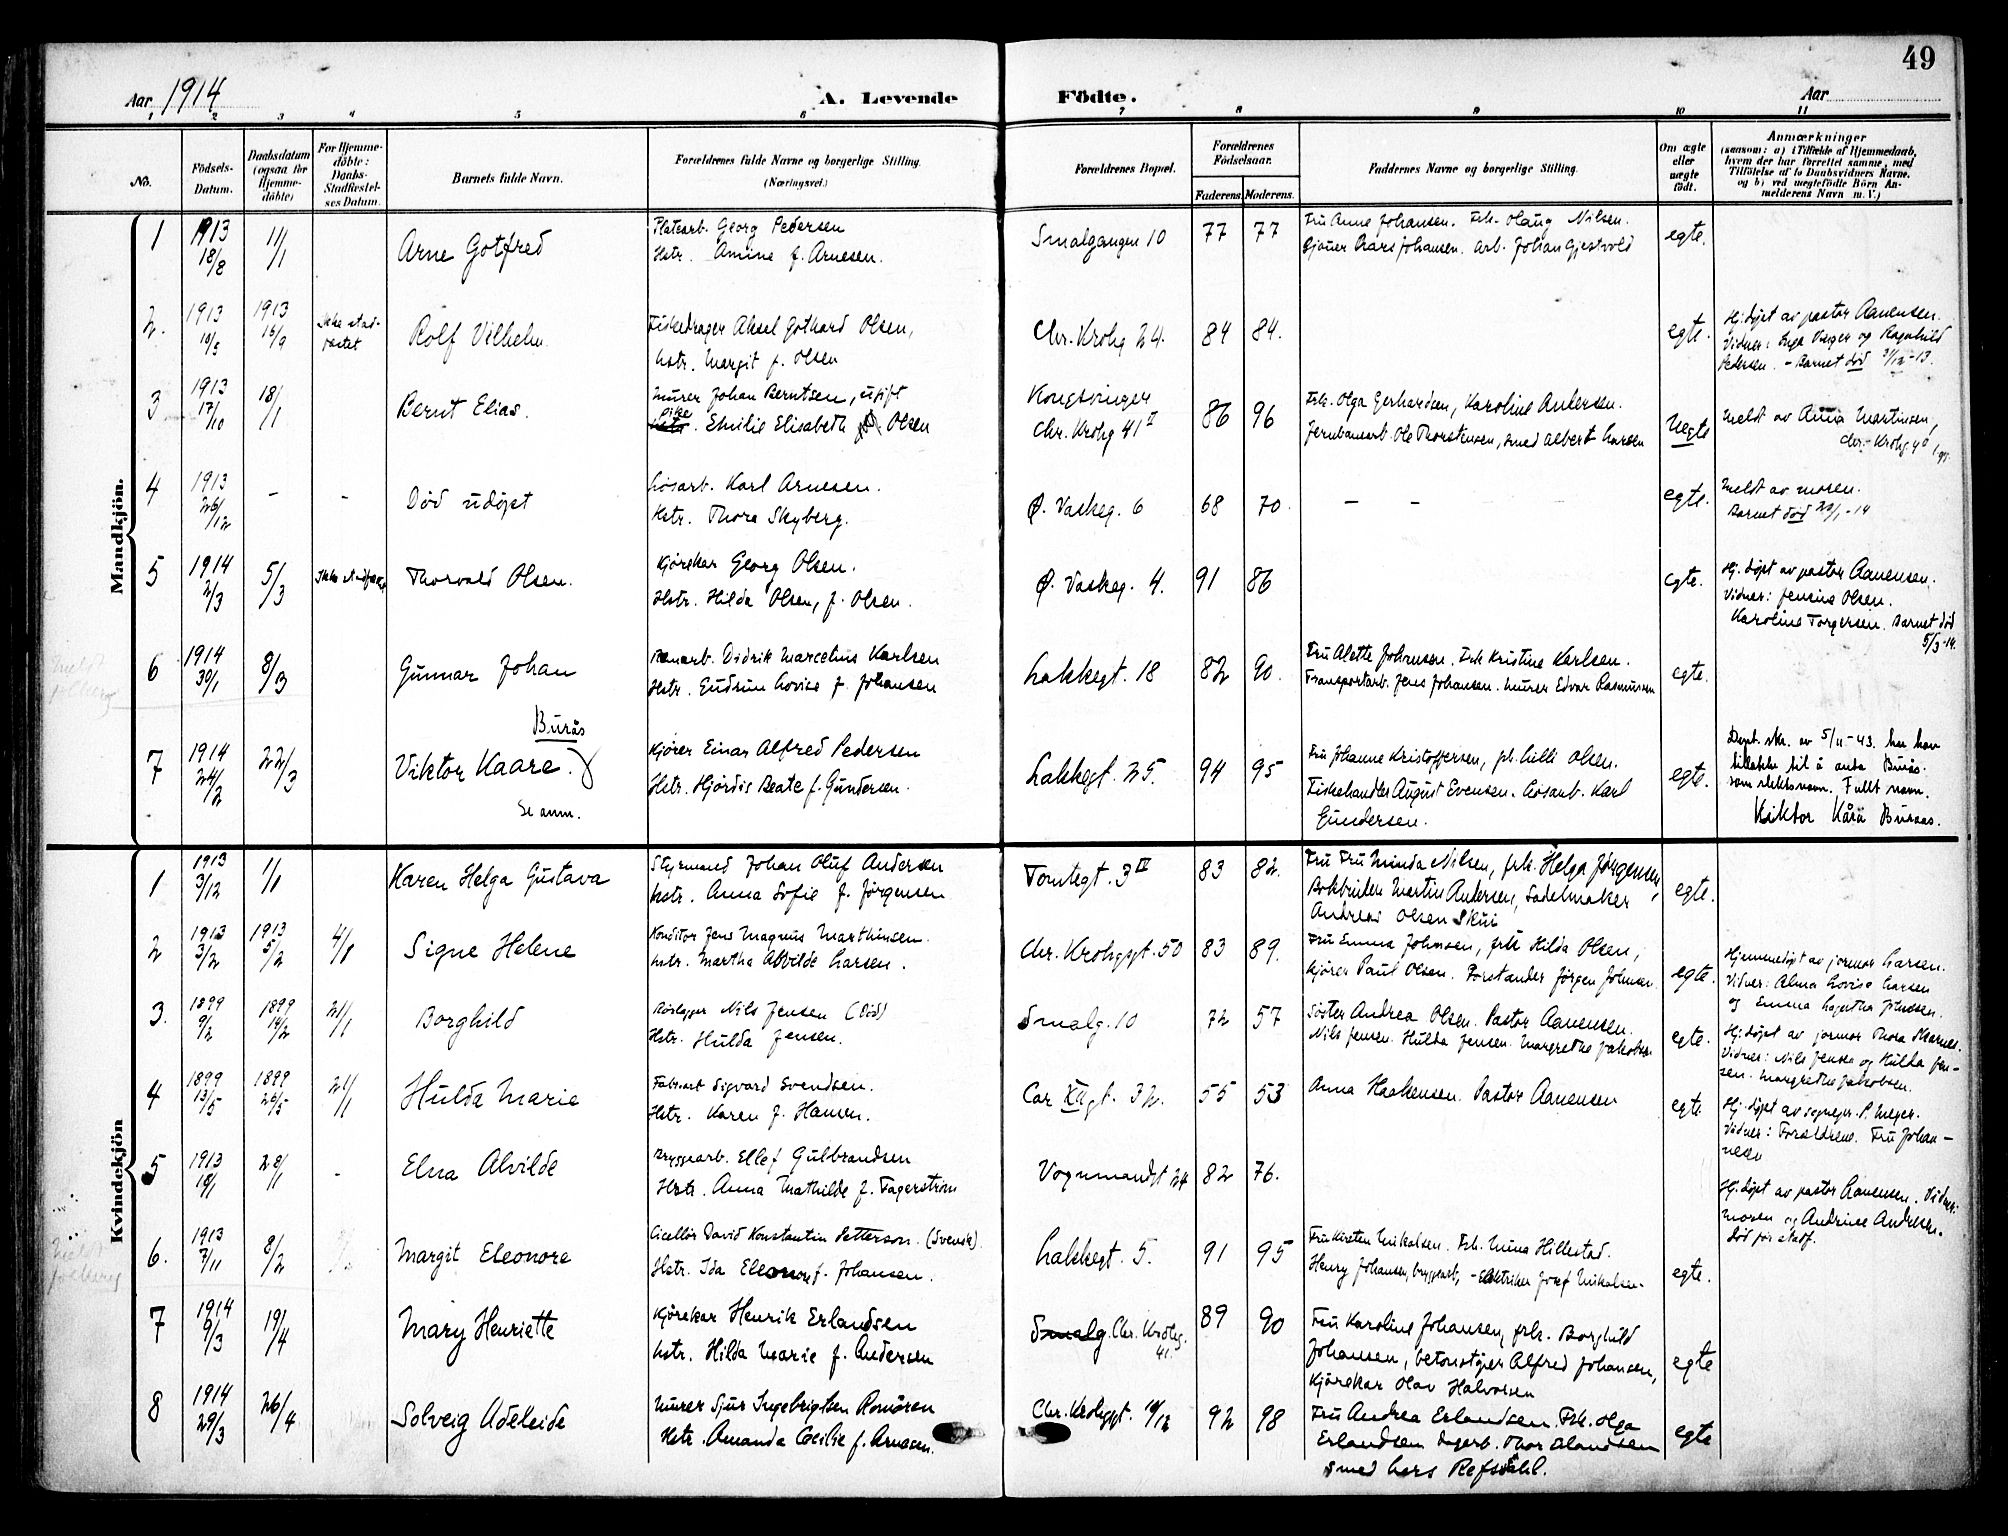 49
Aar 1914
A. Levende Födte.
Aar
1 2 3 4 5 6 7 8 9 10 11
No.
Födsels-Datum.
Daabsdatum (ogsaa for Hjemme-döbte)
For Hjemme-döbte: Daabs-Stadfæstel-ses Datum.
Barnets fulde Navn.
Forældrenes fulde Navne og borgerlige Stilling. (Næringsvei.)
Forældrenes Bopæl.
Forældrenes Födselsaar.
Faderens. Moderens.
Faddernes Navne og borgerlige Stilling.
Om ægte eller uægte födt.
Anmærkninger
(saasom: a) i Tilfælde af Hjemmedaab,
hvem der har forrettet samme, med
Tilföielse af to Daabsvidners Navne.
og b) ved uægtefödte Börn An-
melderens Navn m. V.)
Mandkjön.
1 1913 18/8 11/1 Arne Gotfred
Georg Pedersen
Hstr. Amine f. Arnesen.
Smalgangen 10 77 77
Fru Anne Johansen. Frk. Olaug Nilsen.
Lars Johansen. Arb. Johan Gjestvold
egte.
2. 1913 10/5 1913 16/9 Ikke stad-fæstet Rolf Vilhelm
Fiskedrager Aksel Gothard Olsen,
hstr. Margit f. Olsen
Chr. Krohg 24. 84 84.
egte.
Hj. døpt av pastor Aanensen.
Vidner: Inga Meyer og Ragnhild
Pedersen. - Barnet død 3/12-13.
3 1913 17/10 18/1 Bernt Elias.
Murer Johan Berntsen, ugift
pike Emilie Elisabeth Olsen
Kongsvinger
Chr. Krohg 41 II 86 96
Frk. Olga Gerhardsen, Karoline Andersen.
Jernbanearb. Ole Thorstensen, smed Albert Larsen
Uegte
Meldt av Anna Martinsen,
Chr. Krohg 40
4 1913 26/12 - - Død udøpt
Løsarb. Karl Arnesen.
Hstr. Thora Skyberg.
Ø. Vaskeg. 6 68 70. - -
egte.
Meldt av moren.
Barnet død
5 1914 2/3 5/3 Ikke stadfæstet Thorvald Olsen.
Kjørekar Georg Olsen.
Hstr. Hilda Olsen, f. Olsen.
Ø. Vaskeg. 4. 91 86
egte.
Hj. døpt av pastor Aanensen.
Vidner: Jensine Olsen.
Karoline Torgersen. Barnet død
5/3-14.
6 1914 30/1 8/3 Gunnar Johan
Didrik Marcelius Karlsen
Hstr. Gudrun Lovise f. Johansen
Lakkegt. 18 82 90.
Fru Alette Johansen. Frk Kristine Karlsen.
Transportarb. Jens Johansen. Murer Edvar Rasmussen
egte.
Burås
7 1914 24/2 22/3 Viktor Kaare.
Se anm.
Kjører Einar Alfred Pedersen
Hstr. Hjørdis Beate f. Gundersen.
Lakkegt. 25. 94 95
Fru Johanne Kristoffersen, frk. Lilli Olsen.
Fiskehandler August Evensen. Løsarb. Karl
Gundersen.
egte.
Dept. skr. av 5/11-43. har han
tillatelse til å anta Burås
som slektsnavn. Fullt navn.
Viktor Kåre Buraas.
Kvindekjön
1 1913 3/12 1/1 Karen Helga Gustava
Styrmand Johan Oluf Andersen
hstr. Anna Sofie f. Jørgensen
Tomtegt. 3 IV 83 82.
Fru Fru Minda Nilsen, frk. Helga Jørgensen,
Bokbinder Martin Andersen, Sadelmaker
Andreas Olsen Skui
egte.
2 1913 3/2 1913 5/2 4/1 Signe Helene
Konditor Jens Magnus Marthinsen.
hstr. Martha Alvilde Larsen.
Chr. Krohggt. 50 83 89.
Fru Emma Johnsen, frk Hilda Olsen,
kjører Paul Olsen. Forstander Jørgen Johnsen
egte.
Hjemmedøpt av jormor Larsen.
Vidner: Alma Lovise Larsen
og Emma Lagertha Knudsen.
3. 1899 9/2 1899 14/2 21/1 Borghild
Rørlegger Nils Jensen (Død)
Hstr. Hulda Jensen.
Smalg. 10 72 57
Søster Andrea Olsen. Pastor Aanensen.
Nils Jensen. Hulda Jensen. Margrethe Jakobsen
egte.
Hj. døpt av jormor Thora
Vidner: Nils Jensen og Hulda Jen-
sen. Margrethe Jakobsen.
4 1899 13/5 1899 26/5 21/1 Hulda Marie
Sigvard Svendsen.
Hstr. Karen f. Hansen.
Car XIIgt. 32. 55 53
Anna Haakensen. Pastor Aanensen
egte
Hj. døpt av sogneprs. P. Meyer.
Vidner: Forældrene. Fru Johan-
nesen
5 1913 18/1 28/1 - Elna Alvilde
Bryggearb. Ellef Gulbrandsen
Hstr. Anna Mathilde f. Fagerstrøm
Vognmandgt 24 82 76.
Hj. døpt av pastor Aanensen. Vidner:
Moren og Andrine Andersen.
Død før stadf.
6. 1913 7/11 8/2 Margit Eleonora
David Konstantin Petterson. (Svensk).
Hstr. Ida Eleonore f. Johansen.
Lakkegt. 5. 91 95
Fru Kirsten Mikalsen. Frk. Mina Hillestad.
Henry Johansen, bryggearb, - Elektriker Josef Mikalsen.
egte.
7 1914 9/3 19/4 Mary Henriette
Kjørekar Henrik Erlandsen
hstr. Hilda Marie f. Andersen
Smalg. Chr. Krohg. 41. 89 90
Fru Karoline Johansen, frk. Borghild
Johansen, betonstøper Alfred Johansen,
kjørekar Olav Halvorsen
egte
8 1914 29/3 26/4 Solveig Adeleide
Murer Sjur Ingebrigtsen Romøren
Hstr. Amanda Cecilie f. Arnesen.
Chr. Krohggt. 10/12 92 98
Fru Andrea Erlandsen. Frk. Olga
Erlandsen. Thor Erlandsen
smed Lars Refsdahl.
egte